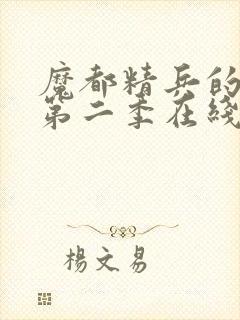 魔都精兵的
第二季在綫
楊文易